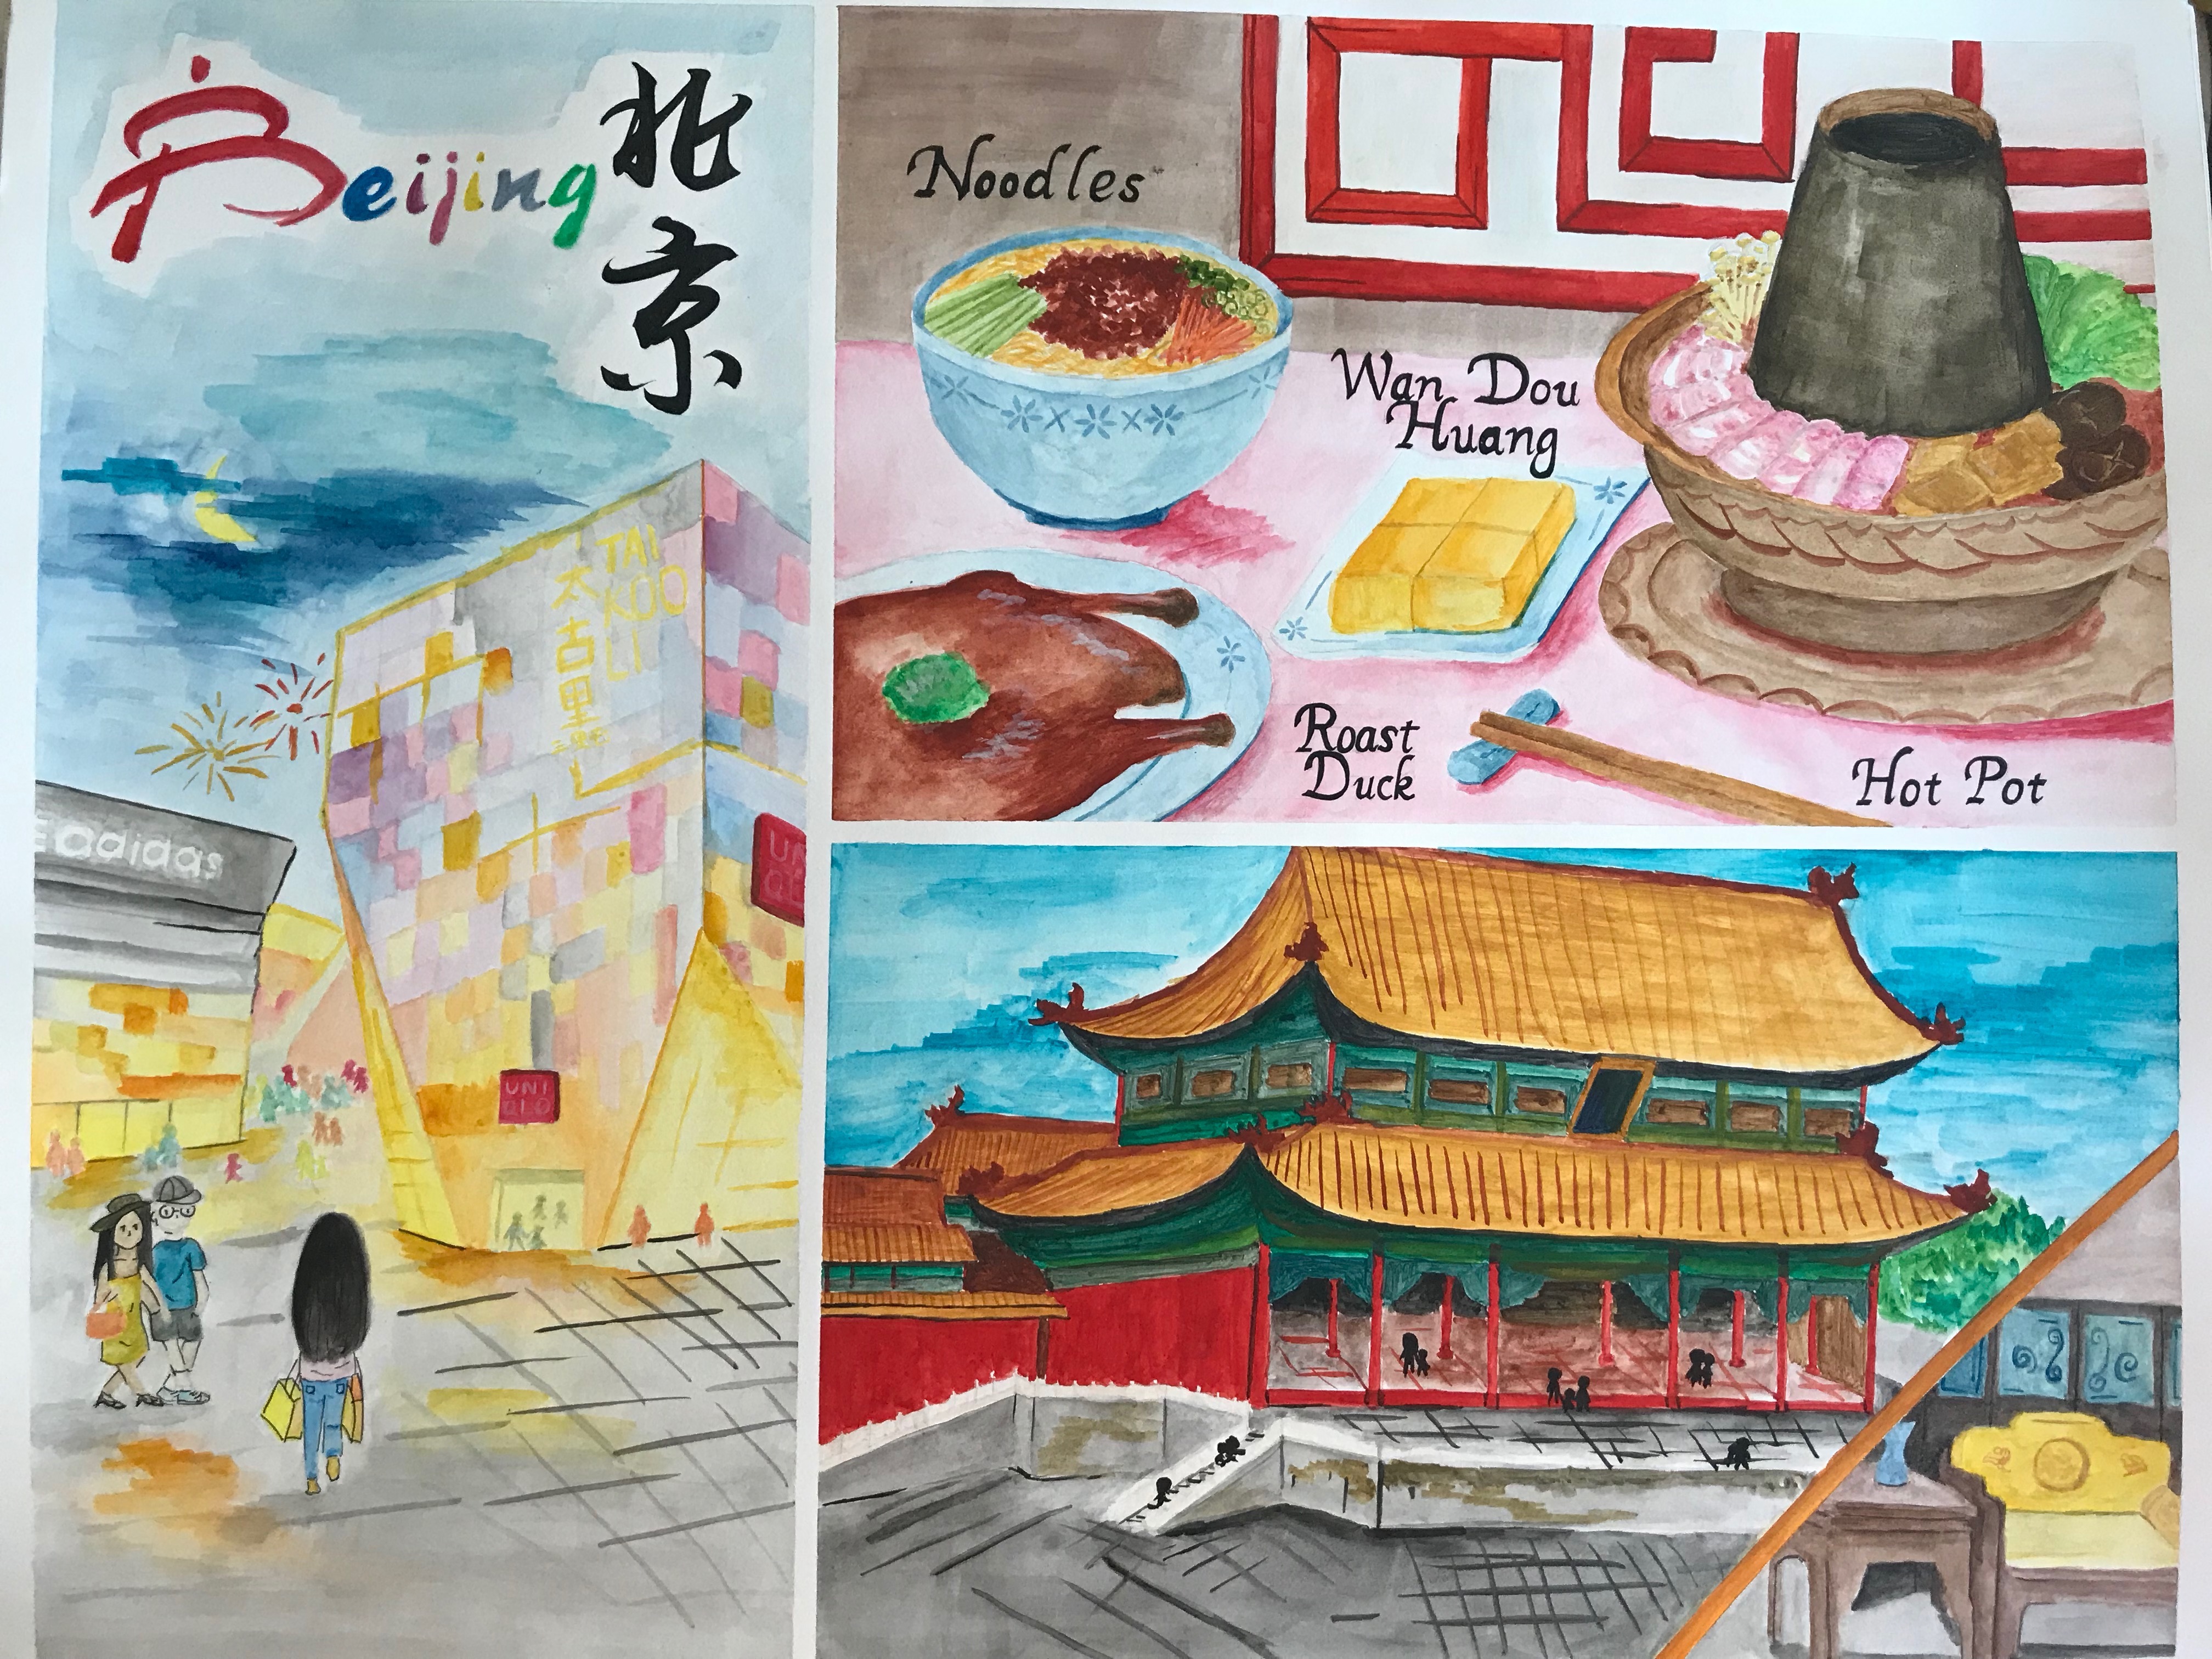 Beijing
北京
TAI
KOO
LI
太古里
三里屯
adidas
UNI
QLO
UNI
QLO
Noodles
Wan Dou
Huang
Roast
Duck
Hot Pot